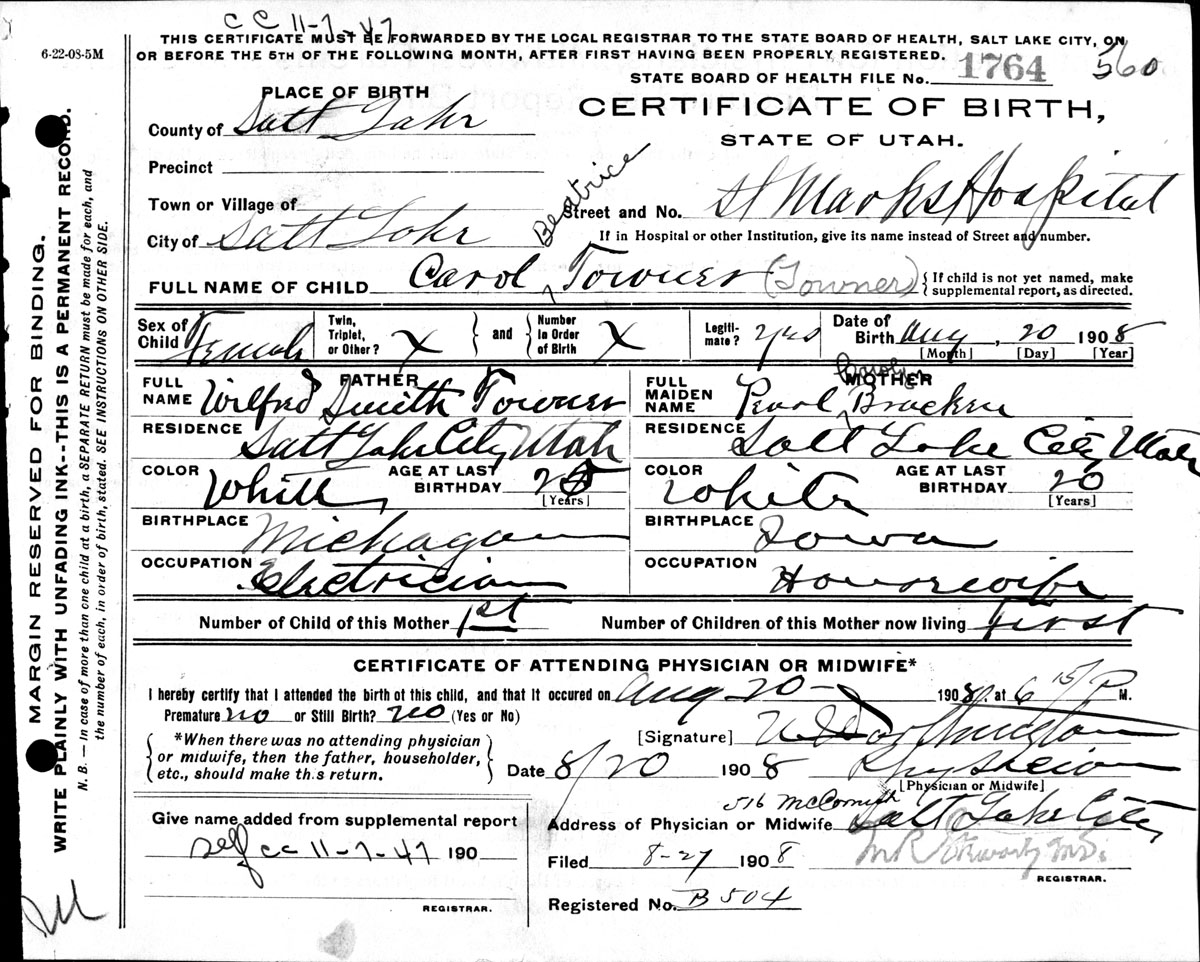 CC 11-7-47
6-22-08-5M
THIS CERTIFICATE MUST BE FORWARDED BY THE LOCAL REGISTRAR TO THE STATE BOARD OF HEALTH, SALT LAKE CITY, ON
OR BEFORE THE 5TH OF THE FOLLOWING MONTH, AFTER FIRST HAVING BEEN PROPERLY REGISTERED.
STATE BOARD OF HEALTH FILE No. 1764 560
PLACE OF BIRTH
CERTIFICATE OF BIRTH,
STATE OF UTAH.
County of Salt Lake
Precinct
Town or Village of
Street and No. St Marks Hospital
City of Salt Lake
If in Hospital or other Institution, give its name instead of Street and number.
Beatrice
FULL NAME OF CHILD Carol Towner (Towner)
If child is not yet named, make
supplemental report, as directed.
Sex of Child Female
Twin, Triplet, or Other? X and Number in Order of Birth X
Legitimate? yes
Date of Birth Aug, 20 1908
[Month] [Day] [Year]
FATHER
FULL NAME Wilfred Smith Towner
RESIDENCE Salt Lake City Utah
COLOR White AGE AT LAST BIRTHDAY
[Years]
BIRTHPLACE Michagan
OCCUPATION Electrician
MOTHER
FULL MAIDEN NAME Pearl Bracken
RESIDENCE Salt Lake City Utah
COLOR White AGE AT LAST BIRTHDAY 20
[Years]
BIRTHPLACE Iowa
OCCUPATION Housewife
Number of Child of this Mother 1st Number of Children of this Mother now living First
CERTIFICATE OF ATTENDING PHYSICIAN OR MIDWIFE*
I hereby certify that I attended the birth of this child, and that it occured on Aug 20 - 1908, at 6 15/ P M.
Premature no or Still Birth? no (Yes or No)
*When there was no attending physician
or midwife, then the father, householder,
etc., should make th.s return.
[Signature]
Date 8/20 1908 Physician
[Physician or Midwife]
Give name added from supplemental report
self cc 11-7-47 190
REGISTRAR.
516 McCornick
Address of Physician or Midwife Salt Lake City
Filed 8-27 1908
REGISTRAR.
Registered No. B 504
MARGIN RESERVED FOR BINDING.
WRITE PLAINLY WITH UNFADING INK--THIS IS A PERMANENT RECORD.
N. B. — In case of more than one child at a birth, a SEPARATE RETURN must be made for each, and
the number of each, in order of birth, stated. SEE INSTRUCTIONS ON OTHER SIDE.